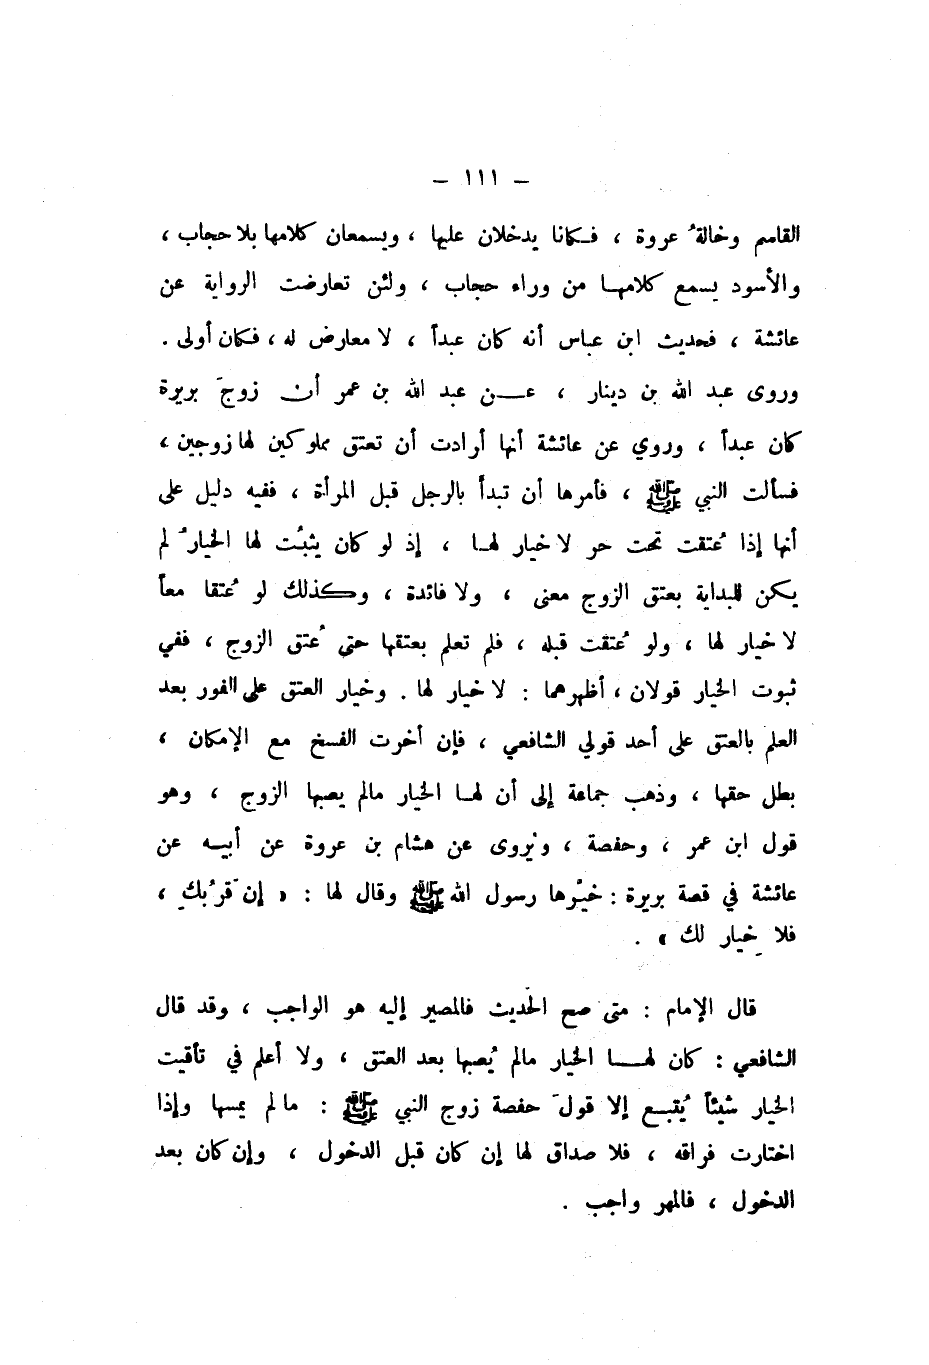 – ١١١ –
القاسم وخالةُ عروة ، فكانا يدخلان عليها ، ويسمعان كلامها بلا حجاب ،
والأسود يسمع كلامها من وراء حجاب ، ولئن تعارضت الرواية عن
عائشة ، فحديث ابن عباس أنه كان عبداً ، لا معارض له ، فكان أولى .
وروى عبد الله بن دينار ، عن عبد الله بن عمر أن زوجَ بريرة
كان عبداً ، وروي عن عائشة أنها أرادت أن تعتق مملوكين لها زوجين ،
فسألت النبي ﷺ ، فأمرها أن تبدأ بالرجل قبل المرأة ، ففيه دليل على
أنها إذا عُتقت تحت حر لا خيار لها ، إذ لو كان يثبُت لها الخيارُ لم
يكن للبداية بعتق الزوج معنى ، ولا فائدة ، وكذلك لو عُتقا معاً
لا خيار لها ، ولو عُتقت قبله ، فلم تعلم بعتقها حتى عُتق الزوج ، ففي
ثبوت الخيار قولان ، أظهرهما : لا خيار لها . وخيار العتق على الفور بعد
العلم بالعتق على أحد قولي الشافعي ، فإن أخرت الفسخ مع الإمكان ،
بطل حقها ، وذهب جماعة إلى أن لها الخيار مالم يصبها الزوج ، وهو
قول ابن عمر ، وحفصة ، ويُروى عن هشام بن عروة عن أبيه عن
عائشة في قصة بريرة : خيَّرها رسول الله ﷺ وقال لها : « إن قَرُبكِ ،
فلا خِيار لكِ » .
قال الإمام : متى صح الحَديث فالمصير إليه هو الواجب ، وقد قال
الشافعي : كان لها الخيار مالم يُصبها بعد العتق ، ولا أعلم في تأقيت
الخيار شيئاً يُتبع إلا قولَ حفصة زوج النبي ﷺ : مالم يمسها وإذا
اختارت فراقه ، فلا صداق لها إن كان قبل الدخول ، وإن كان بعد
الدخول ، فالمهر واجب .